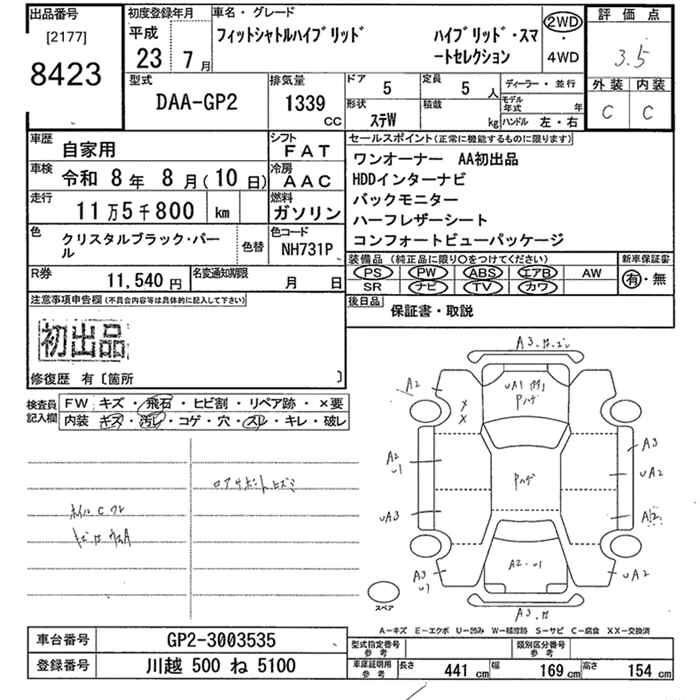 出品番号
[2177]
8423
初度登録年月
平成
23年 7月
車名・グレード
フィットシャトルハイブリッド ハイブリッド・スマートセレクション
2WD
・
4WD
評価点
3.5
外装 内装
C C
型式
DAA-GP2
排気量
1339
CC
ドア 5
定員 5 人
ディーラー・並行
形状 ステW
積載 kg
モデル年式 年
ハンドル 左・右
車歴 自家用
シフト FAT
車検 令和 8年 8月(10日)
冷房 AAC
走行 11万5千800 km
燃料 ガソリン
色 クリスタルブラック・パール
色替
色コード NH731P
R券 11,540 円
名変通知期限 月 日
セールスポイント(正常に機能するものに限ります)
ワンオーナー AA初出品
HDDインターナビ
バックモニター
ハーフレザーシート
コンフォートビューパッケージ
装備品 (純正品に限り○をつけてください)
PS PW ABS エアB AW
SR ナビ TV カワ
新車保証書
有・無
後日品
保証書・取説
注意事項申告欄(不具合内容等は具体的に記入して下さい)
初出品
修復歴 有〔箇所 〕
検査員記入欄
FW キズ・飛石・ヒビ割・リペア跡・×要
内装 キズ・汚れ・コゲ・穴・スレ・キレ・破レ
ロアサポートヒズミ
A2
A3
Pハゲ
Pハゲ
A2
U1
UA3
A3
UA2
A2
UA2
A2・U1
A3
U1
スペア
A―キズ E―エクボ U―凹み W―補修跡 S―サビ C―腐食 XX―交換済
車台番号 GP2-3003535
登録番号 川越 500 ね 5100
型式指定番号 参考
類別区分番号 参考
車庫証明用 参考
長さ 441 cm
幅 169 cm
高さ 154 cm